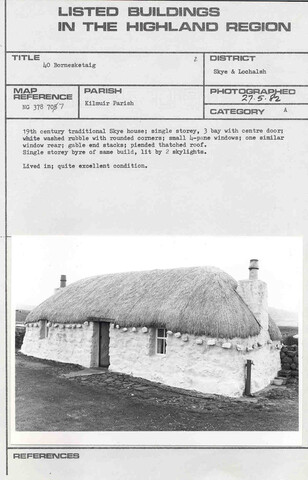 LISTED BUILDINGS
IN THE HIGHLAND REGION
TITLE
40 Borneskotaig 2
DISTRICT
Skye & Lochalsh
MAP
REFERENCE
NG 378 7057
PARISH
Kilmuir Parish
PHOTOGRAPHED
27.5.82
CATEGORY A
19th century traditional Skye house; single storey, 3 bay with centre door;
white washed rubble with rounded corners; small 4-pane windows; one similar
window rear; gable end stacks; piended thatched roof.
Single storey byre of same build, lit by 2 skylights.
Lived in; quite excellent condition.
REFERENCES